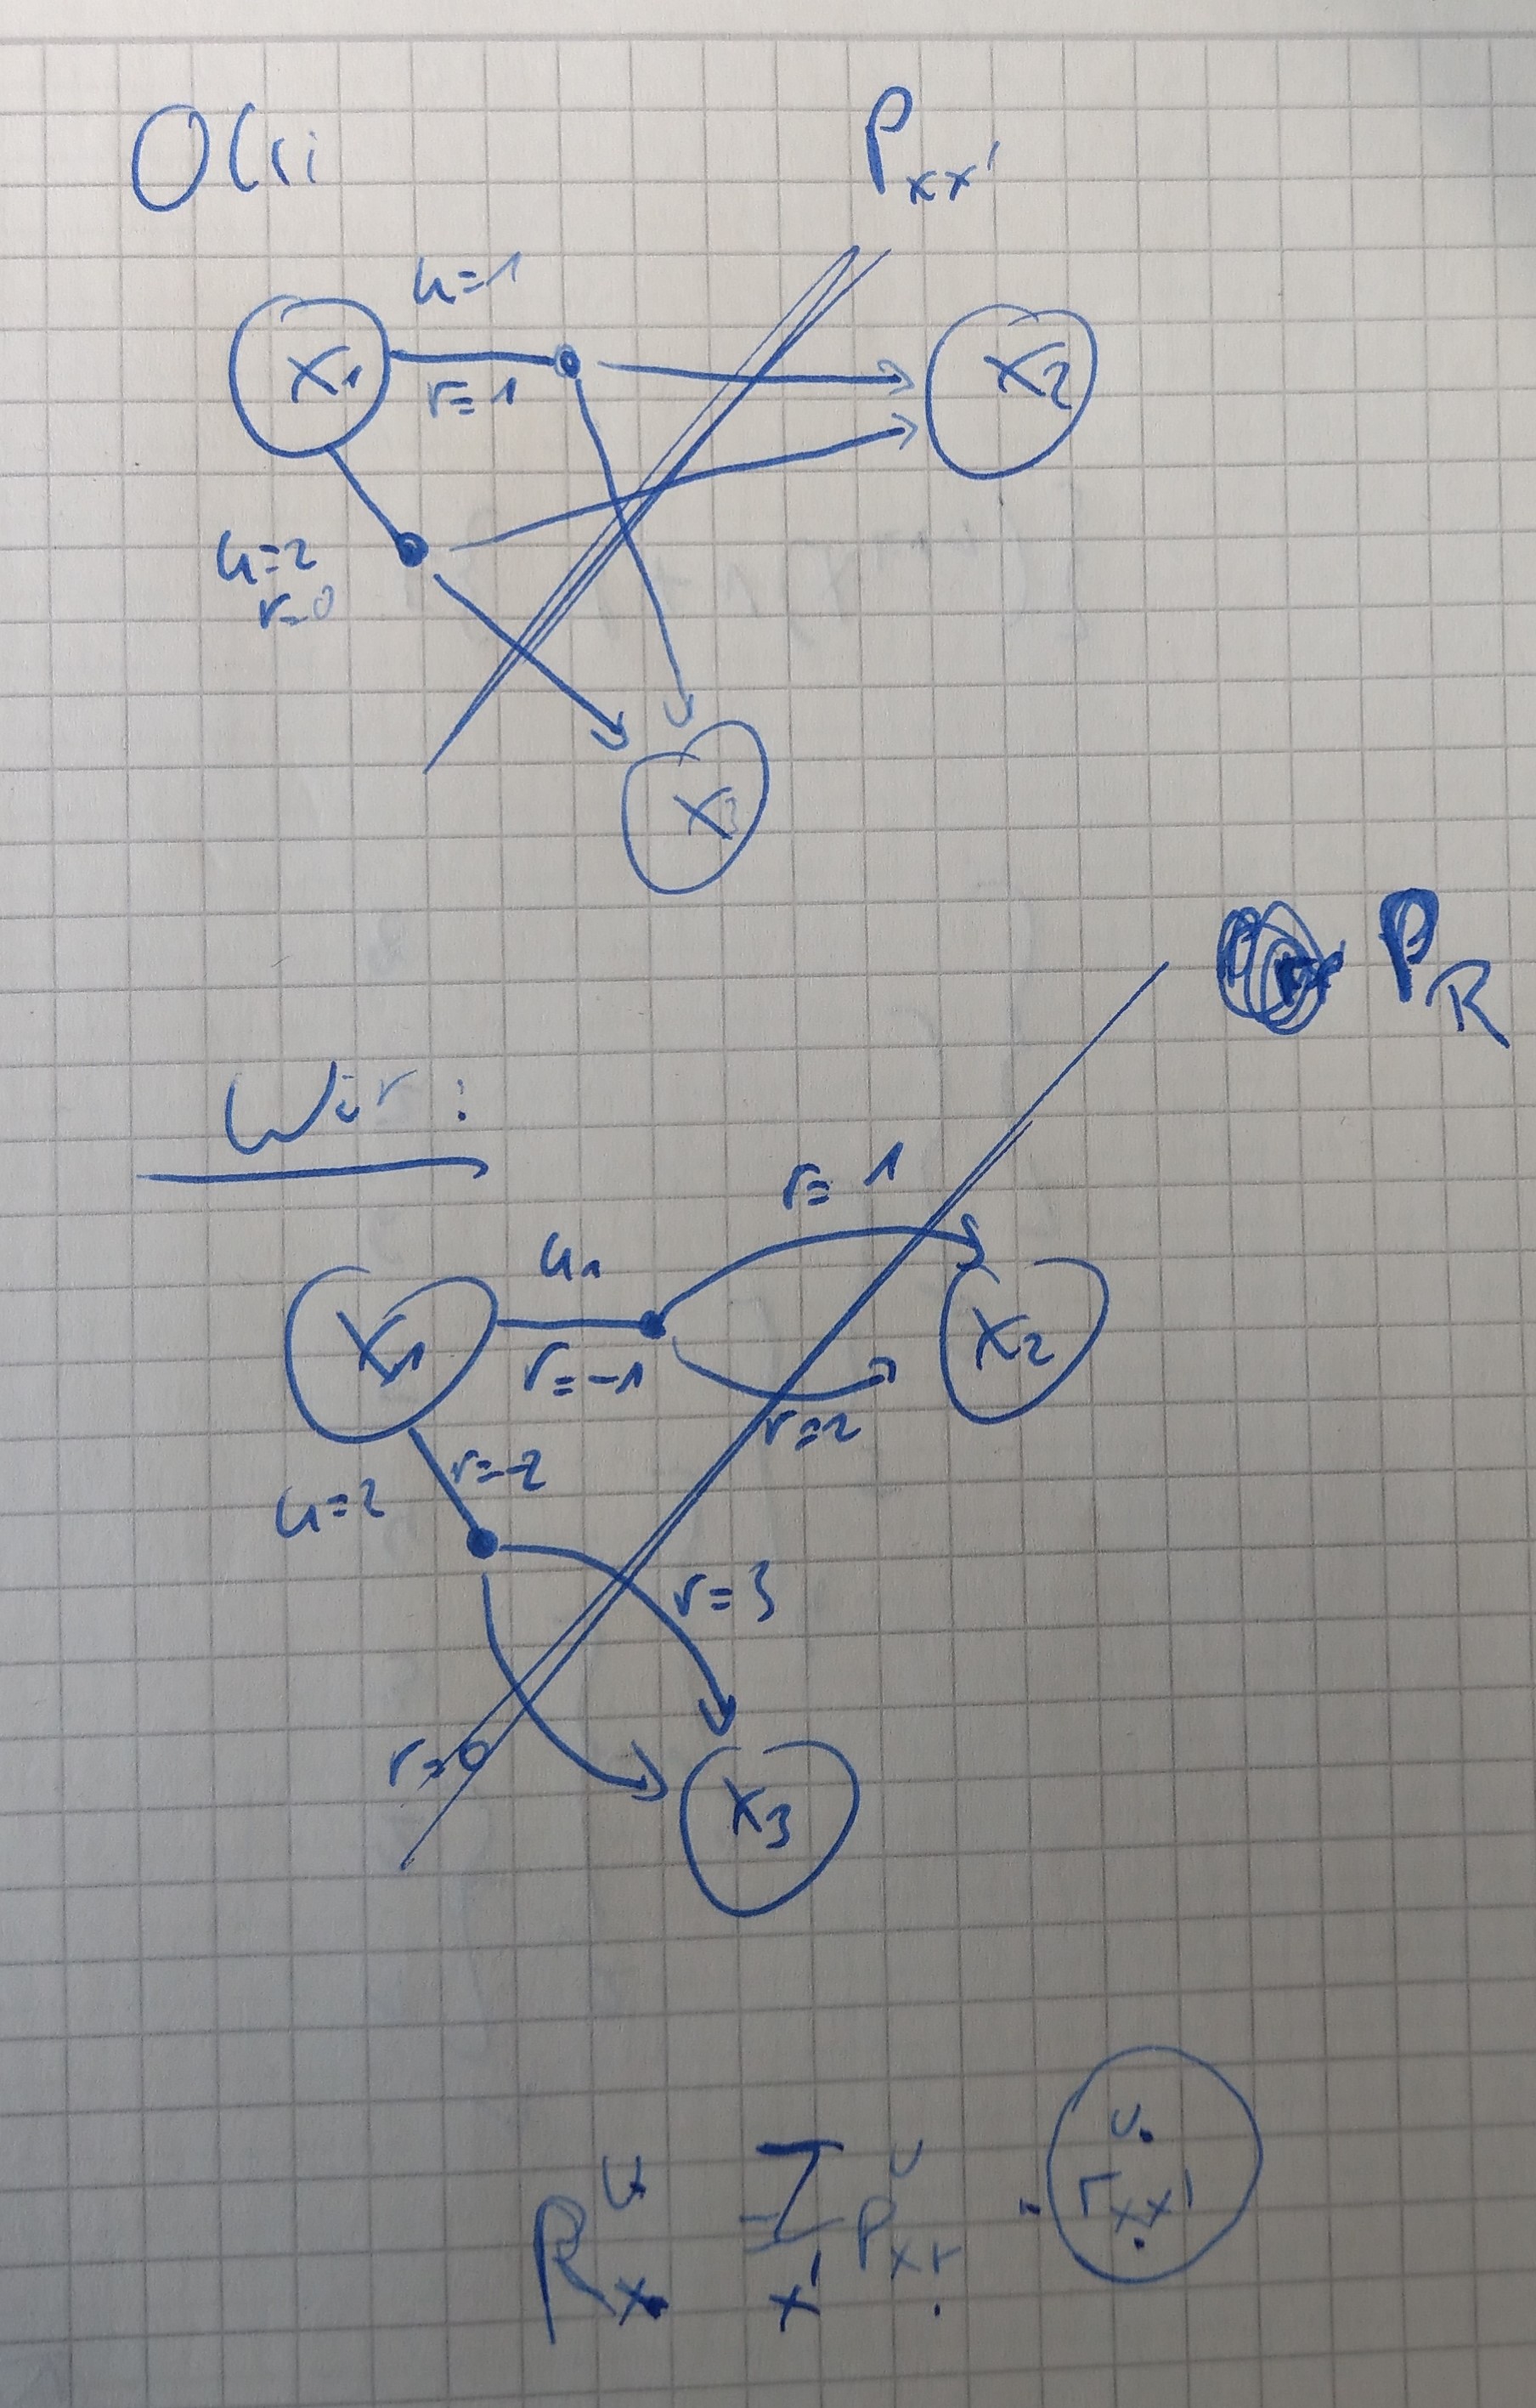 Olli
P_xx'
u=1
x_1
r=1
x_2
u=2
r=0
x_3
P_R
Wir:
r=1
u_1
x_1
r=-1
x_2
r=2
r=-2
u=2
r=3
r=0
x_3
R_x^u = Σ_x' P_xr^u · r_xx'^u